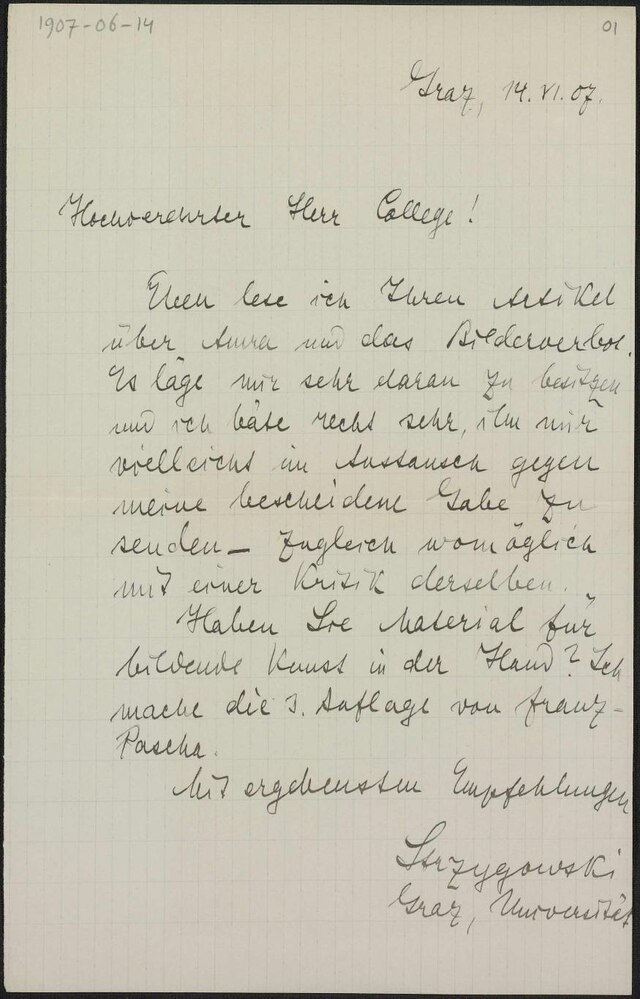 1907-06-14
01
Graz, 14. VI. 07.
Hochverehrter Herr College!
Eben lese ich Ihren Artikel
über Amra und das Bilderverbot.
Es läge mir sehr daran zu besitzen
und ich bäte recht sehr, ihn mir
vielleicht im Austausch gegen
meine bescheidene Gabe zu
senden – zugleich womöglich
mit einer Kritik derselben.
Haben Sie Material für
bildende Kunst in der Hand? Ich
mache die 3. Auflage von Franz-
Pascha.
Mit ergebensten Empfehlungen
Strzygowski
Graz, Universität